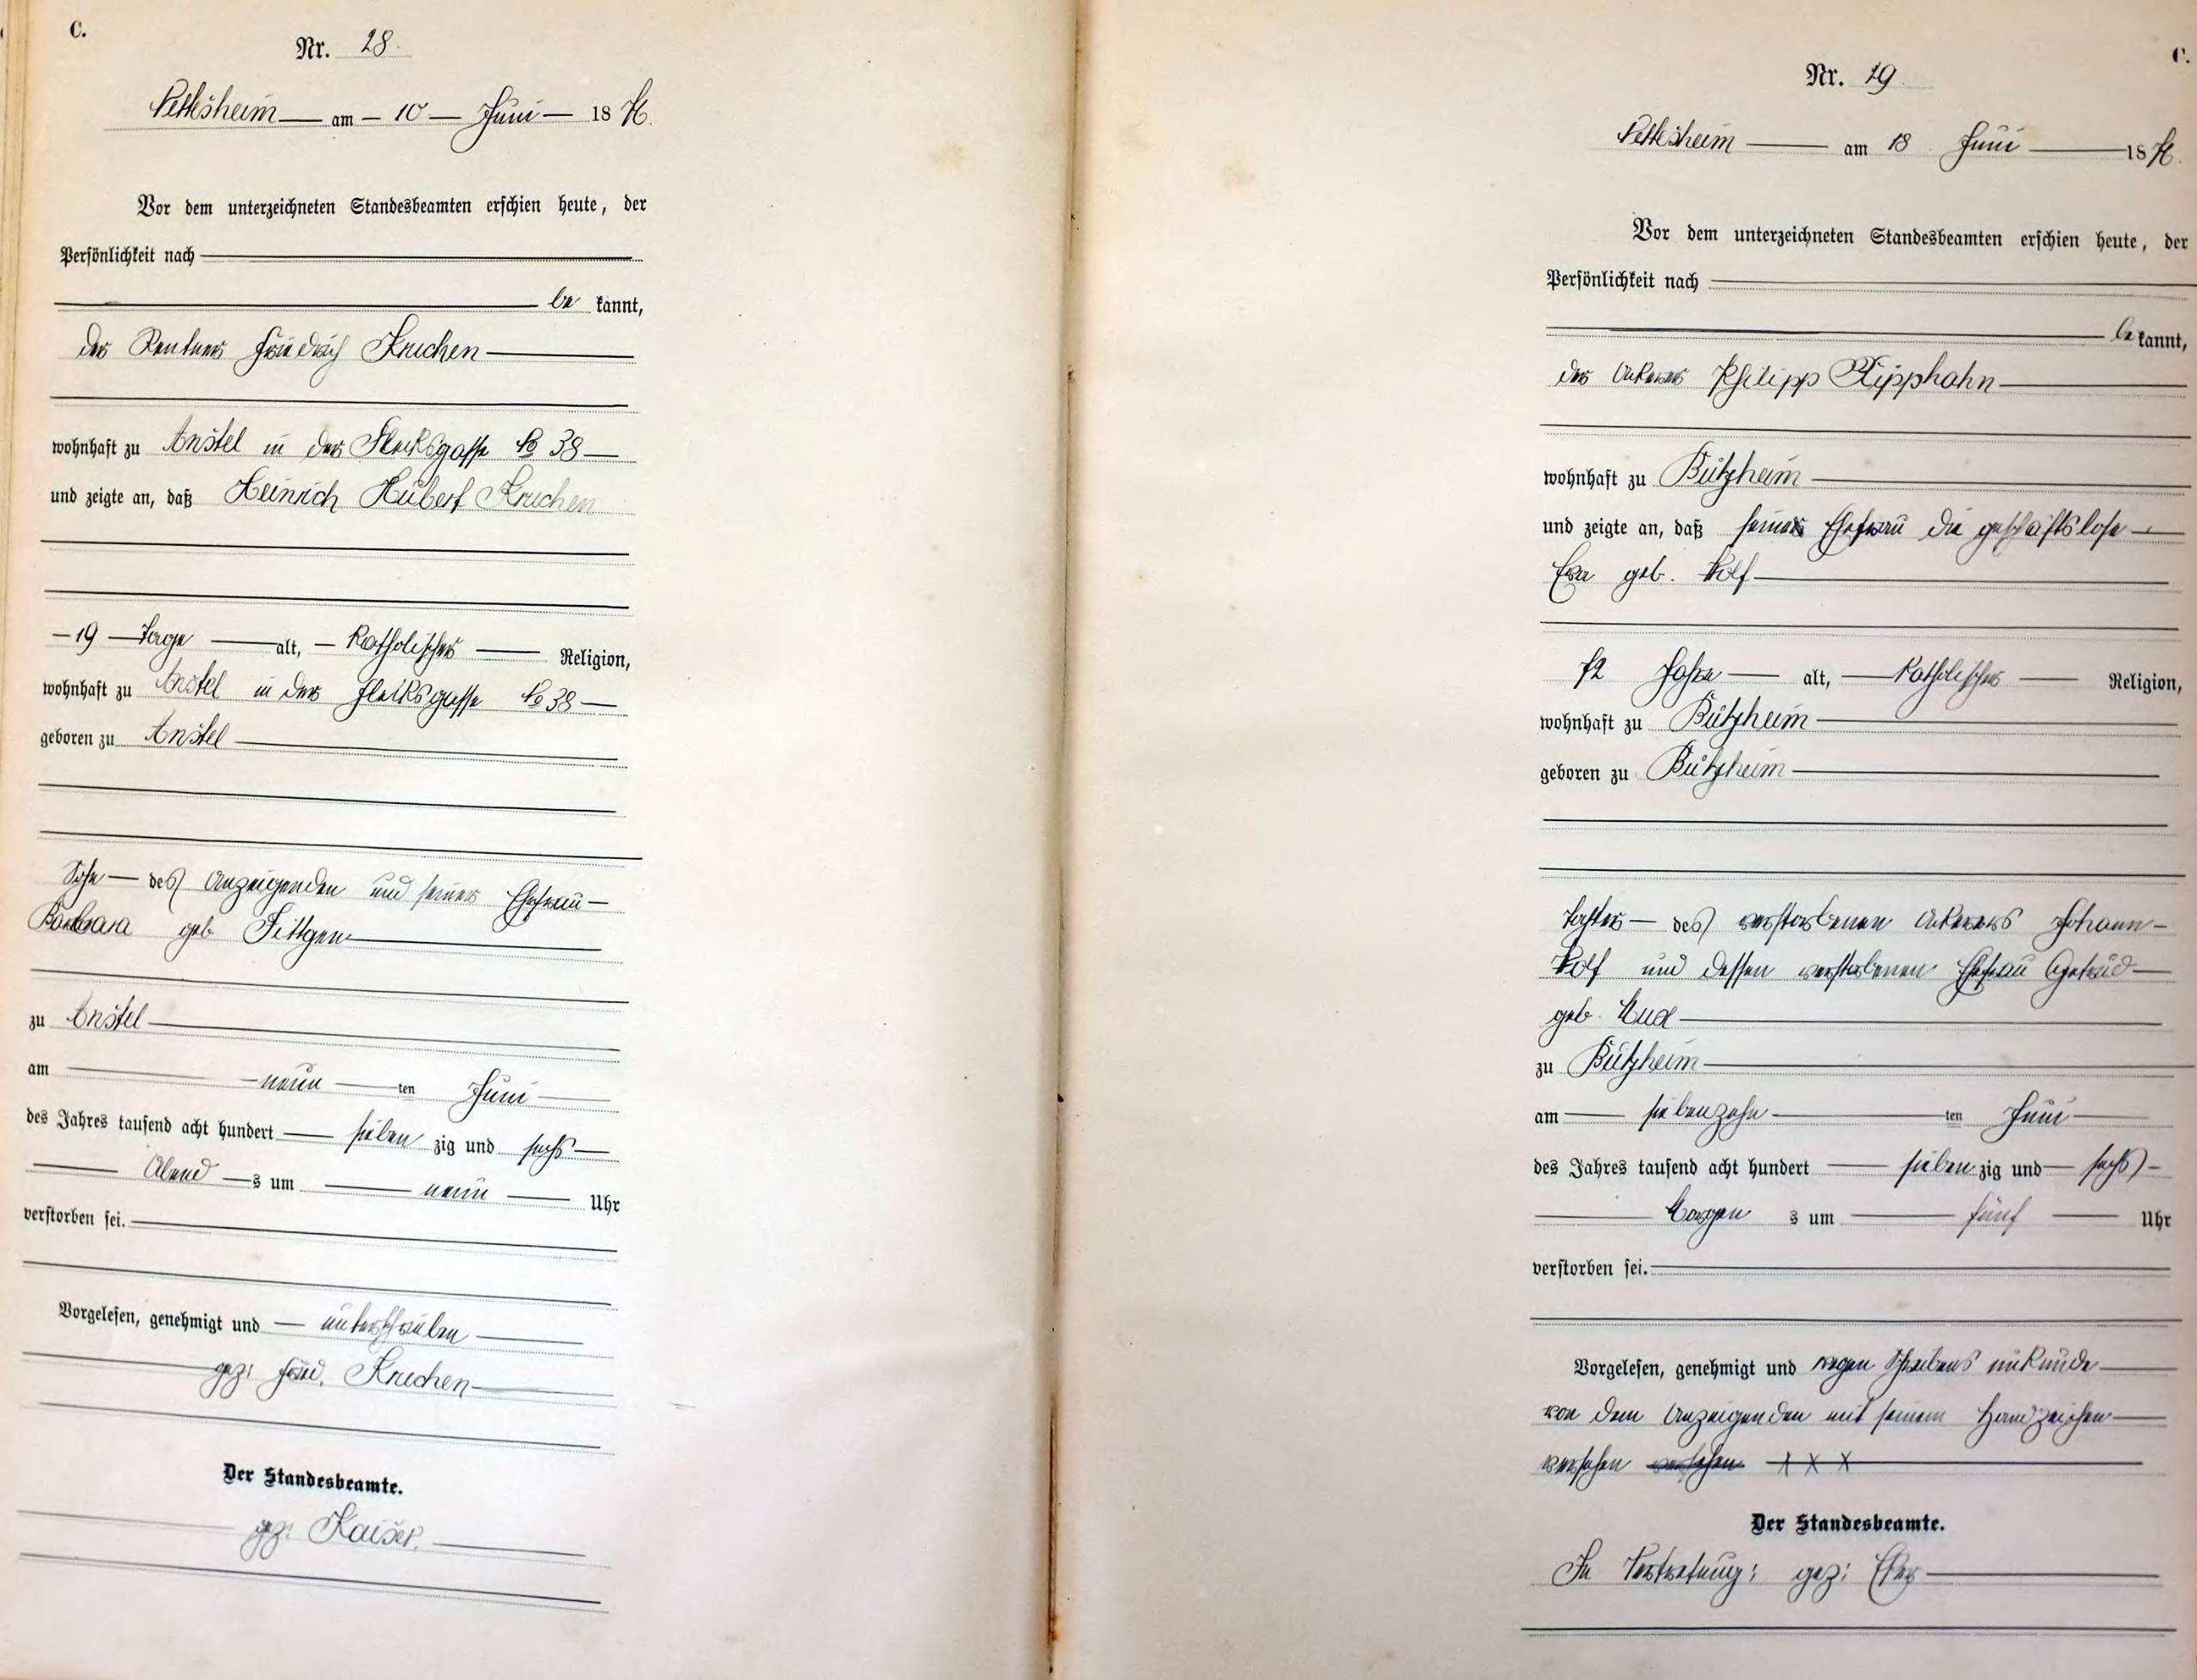 C.
Nr. 28.
Nettesheim am 10 Juni 1876.
Vor dem unterzeichneten Standesbeamten erschien heute, der
Persönlichkeit nach
be kannt,
der Rentner Friedrich Kruchen
wohnhaft zu Anstel in der Fleckgasse No 38
und zeigte an, daß Heinrich Hubert Kruchen
19 Tage alt, Katholischer Religion,
wohnhaft zu Anstel in der Fleckgasse No 38
geboren zu Anstel
Sohn des Anzeigenden und seiner Ehefrau
Barbara geb Fittgen
zu Anstel
am neun ten Juni
des Jahres tausend acht hundert sieben zig und sechs
Abend s um neun Uhr
verstorben sei.
Vorgelesen, genehmigt und unterschrieben
gez: Fried. Kruchen
Der Standesbeamte.
gez: Kaiser.
C.
Nr. 29.
Nettesheim am 18 Juni 1876.
Vor dem unterzeichneten Standesbeamten erschien heute, der
Persönlichkeit nach
be kannt,
der Ackerer Philipp Kipphahn
wohnhaft zu Bützheim
und zeigte an, daß seine Ehefrau die geschäftslose
Eva geb.
72 Jahre alt, Katholischer Religion,
wohnhaft zu Bützheim
geboren zu Bützheim
Tochter des verstorbenen Ackerers Johann
und dessen verstorbenen Ehefrau Getrud
geb.
zu Bützheim
am siebenzehn ten Juni
des Jahres tausend acht hundert sieben zig und sechs
Morgen s um fünf Uhr
verstorben sei.
Vorgelesen, genehmigt und wegen Schreibens unkunde
von dem Anzeigenden mit seinem Handzeichen
versehen versehen X X X
Der Standesbeamte.
In Vertretung: gez: